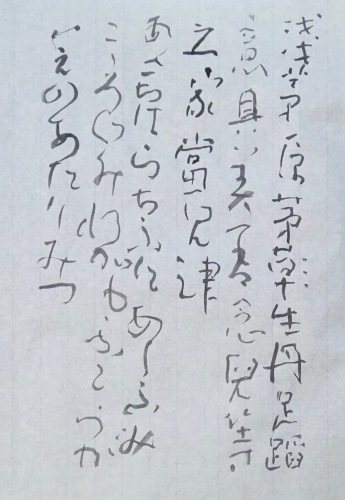 浅茅原茅草生丹足蹈
意具美吾念兒等
之家當見津
あさちはらちふにあしふみ
こころぐみわがもふこらが
いえのあたりみつ